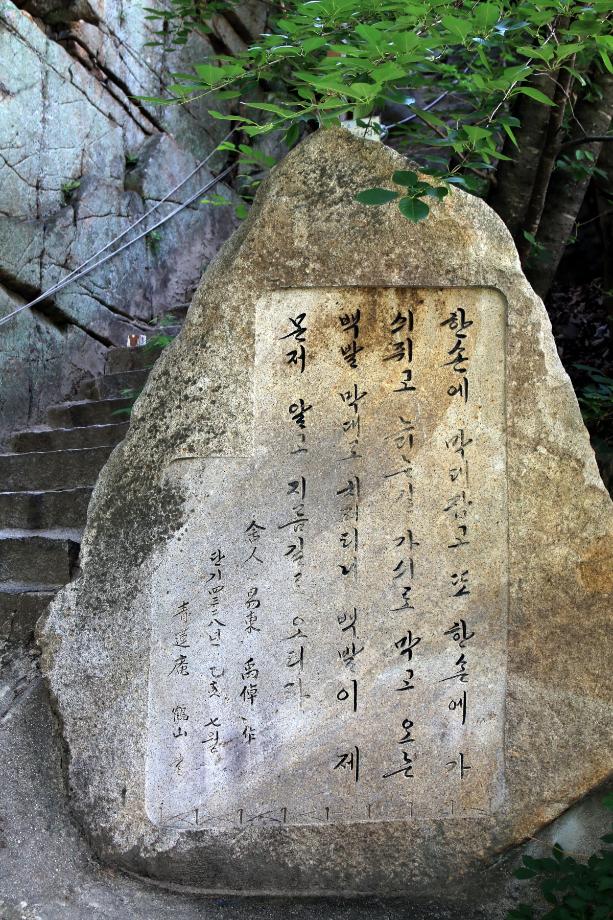 한손에 막대잡고 또 한손에 가
싀쥐고 늙는길 가싀로 막고 오는
백발 막대로 치려터니 백발이 제
몬저 알고 지름길로 오더라
舍人 易東 禹倬 作
단기四三二八년 乙亥 七월
青蓮庵 鶴山